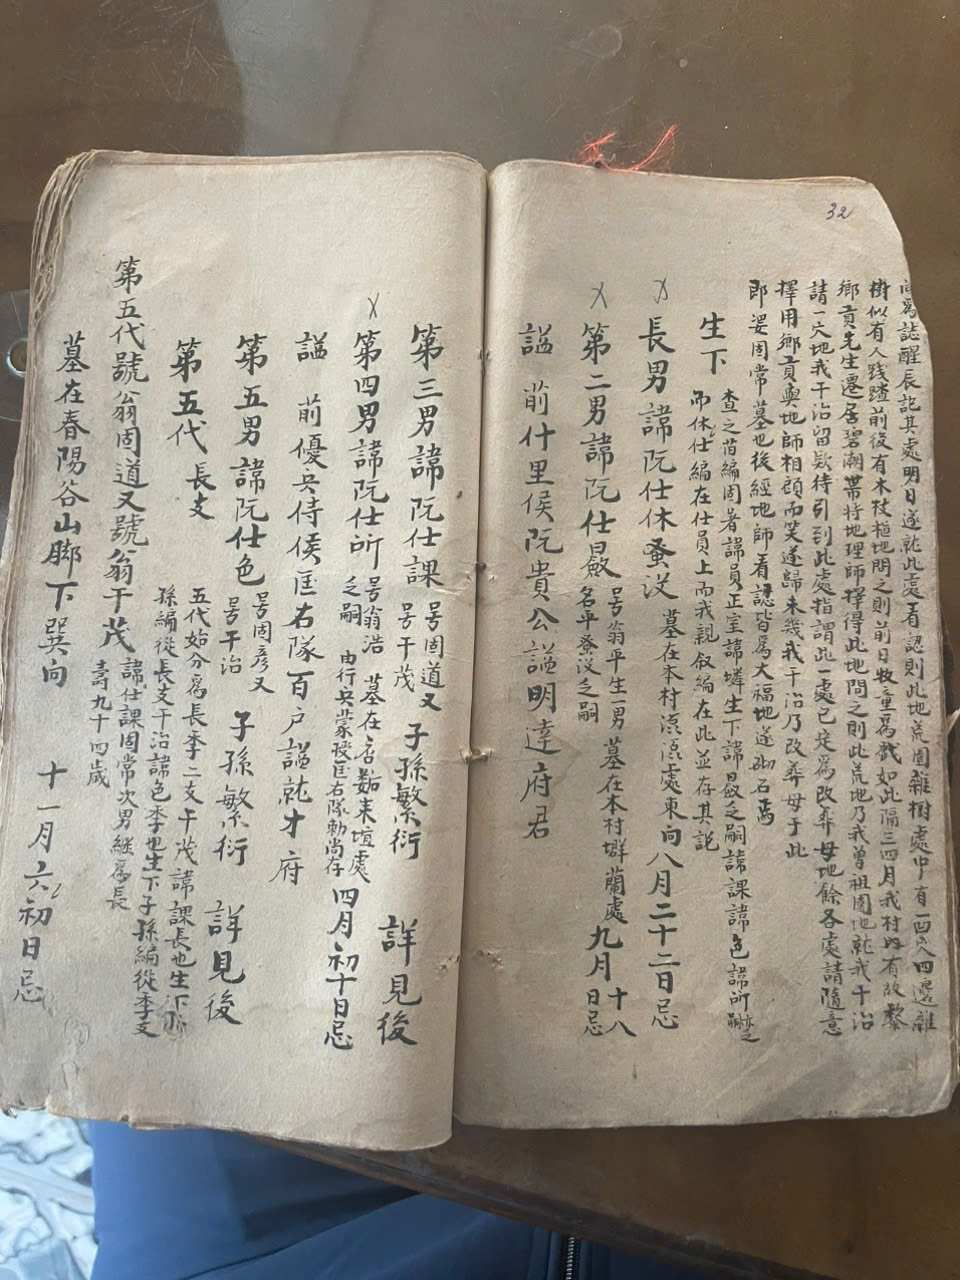 32
為誌醒辰記其處明日遂就此處看認則此地荒園雜樹處中有一凹穴四邊雜
樹似有人踐踏前後有木杖植地問之則前日牧童為戲如此隔三四月我村有故黎
鄉貢先生遷居碧潮帶將地理師擇得此地問之則此荒地乃我曾祖園地就我干治
請一穴地我干治留欵待引到此處指謂此一處已定為改葬母地餘各處請隨意
擇用鄉貢與地師相顧而笑遂歸未幾我干治乃改葬母于此
即婆固常墓也後經地師看認皆為大福地遂砌石焉
生下
查之苗編固著諱員正室諱嫾生下諱晸乏嗣諱課諱色諱所乏嗣
而休仕編在仕員上而我親叙編在此並存其説
長男諱阮仕休蚤没 墓在本村處東向八月二十二日忌
第二男諱阮仕晸 号翁平生一男名平蚤没乏嗣 墓在本村塸蘭處九月十八日忌
謚 前什里侯阮貴公謚明達府君
第三男諱阮仕課 号固道又号干茂 子孫繁衍 詳見後
第四男諱阮仕所 号翁浩乏嗣 墓在唘耒壇處由行兵蒙授匡右隊勅尚存 四月初十日忌
謚 前優兵侍侯匡右隊百户謚就才府
第五男諱阮仕色 号固彥又号干治 子孫繁衍 詳見後
第五代 長支 五代始分為長季二支干茂諱課長也生下
孫編從長支干治諱色季也生下子孫編從季支
第五代號翁固道又號翁干茂 諱仕課固常次男繼為長 壽九十四歲
墓在春陽谷山脚下巽向 十一月六初日忌